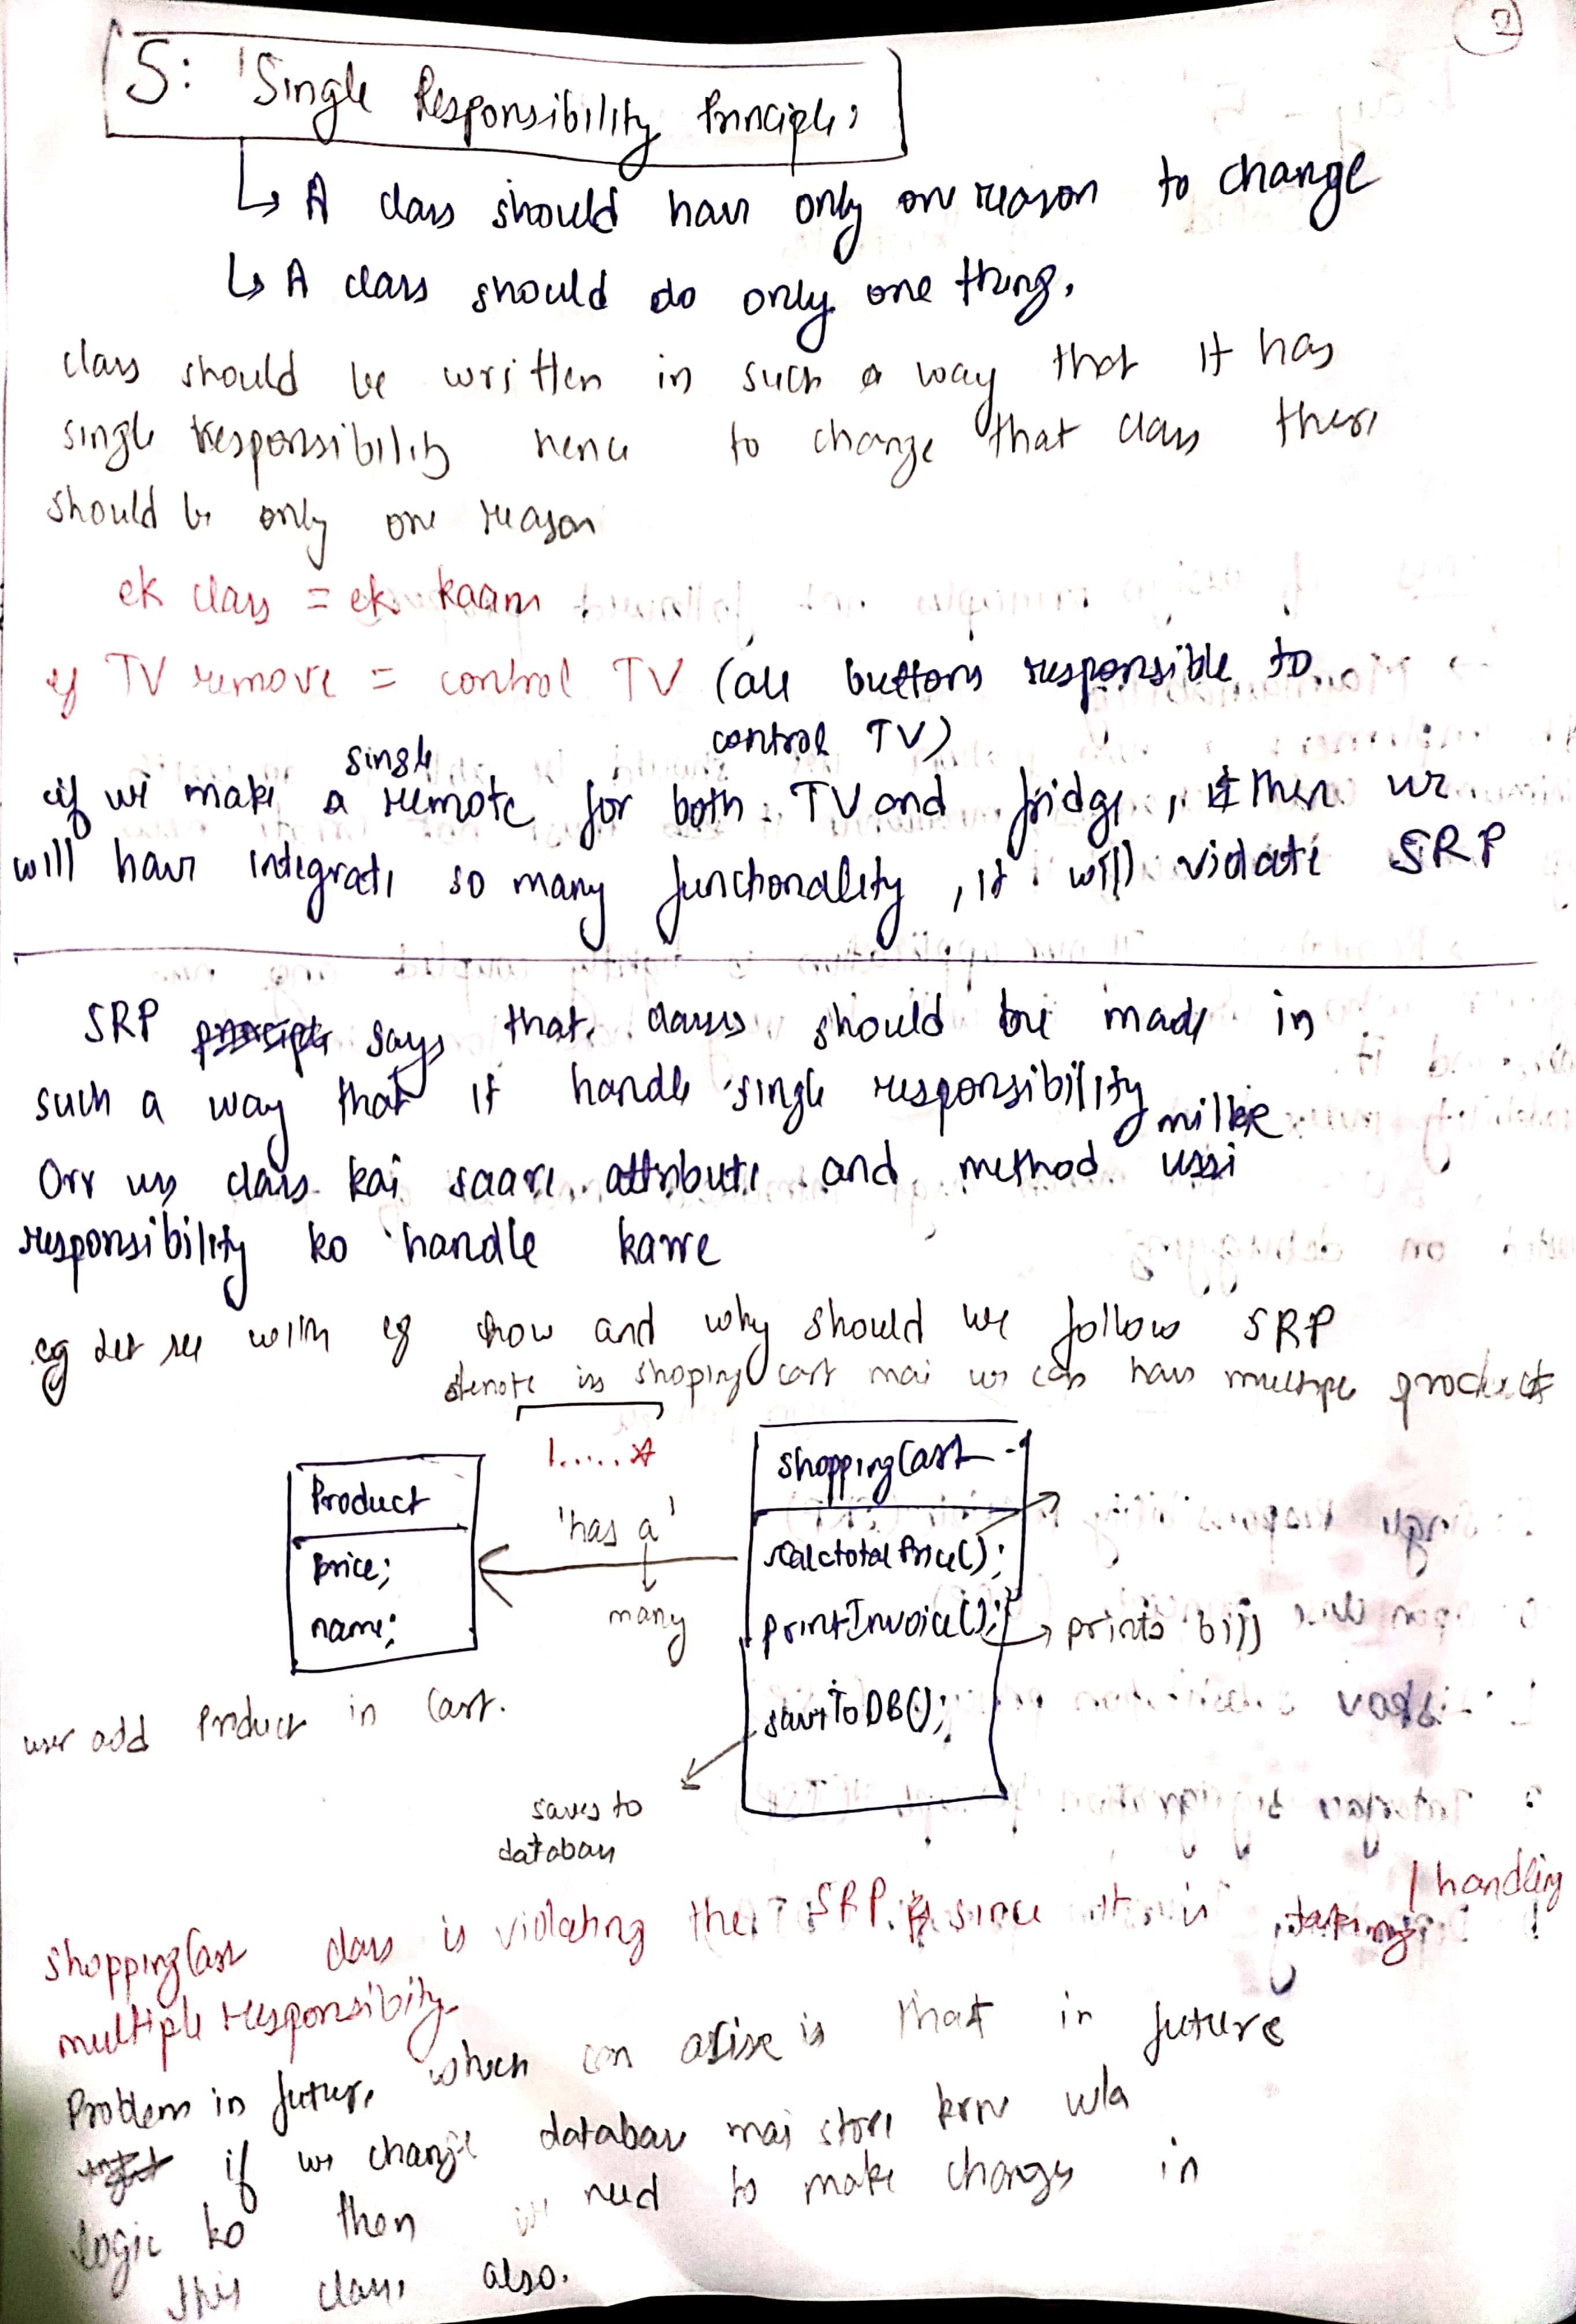 2
S: Single Responsibility Principle:
↳ A class should have only one reason to change
↳ A class should do only one thing.
class should be written in such a way that it has
single responsibility hence to change that class there
should be only one reason
ek class = ek kaam
eg TV remove = control TV (all buttons responsible to
control TV)
single
if we make a remote for both TV and fridge, then we
will have integrate so many functionality, it will violate SRP
SRP says that classes should be made in
such a way that it handle single responsibility
milke
Orr uss class kai saare attribute and method ussi
responsibility ko handle karre
eg Let see with eg how and why should we follow SRP
denote iss shoping cart mai we can have multiple product
1.....*
Product
price;
name;
'has a'
many
ShoppingCart
calctotalPrice();
printInvoice();
→ prints bill
saveToDB();
user add Product in Cart.
saves to
database
/handling
ShoppingCart class is violating the SRP since it is taking
multiple responsibility
Problem in future which can arise is that in future
if we change database mai store krne wla
logic ko then we need to make changes in
this class also.